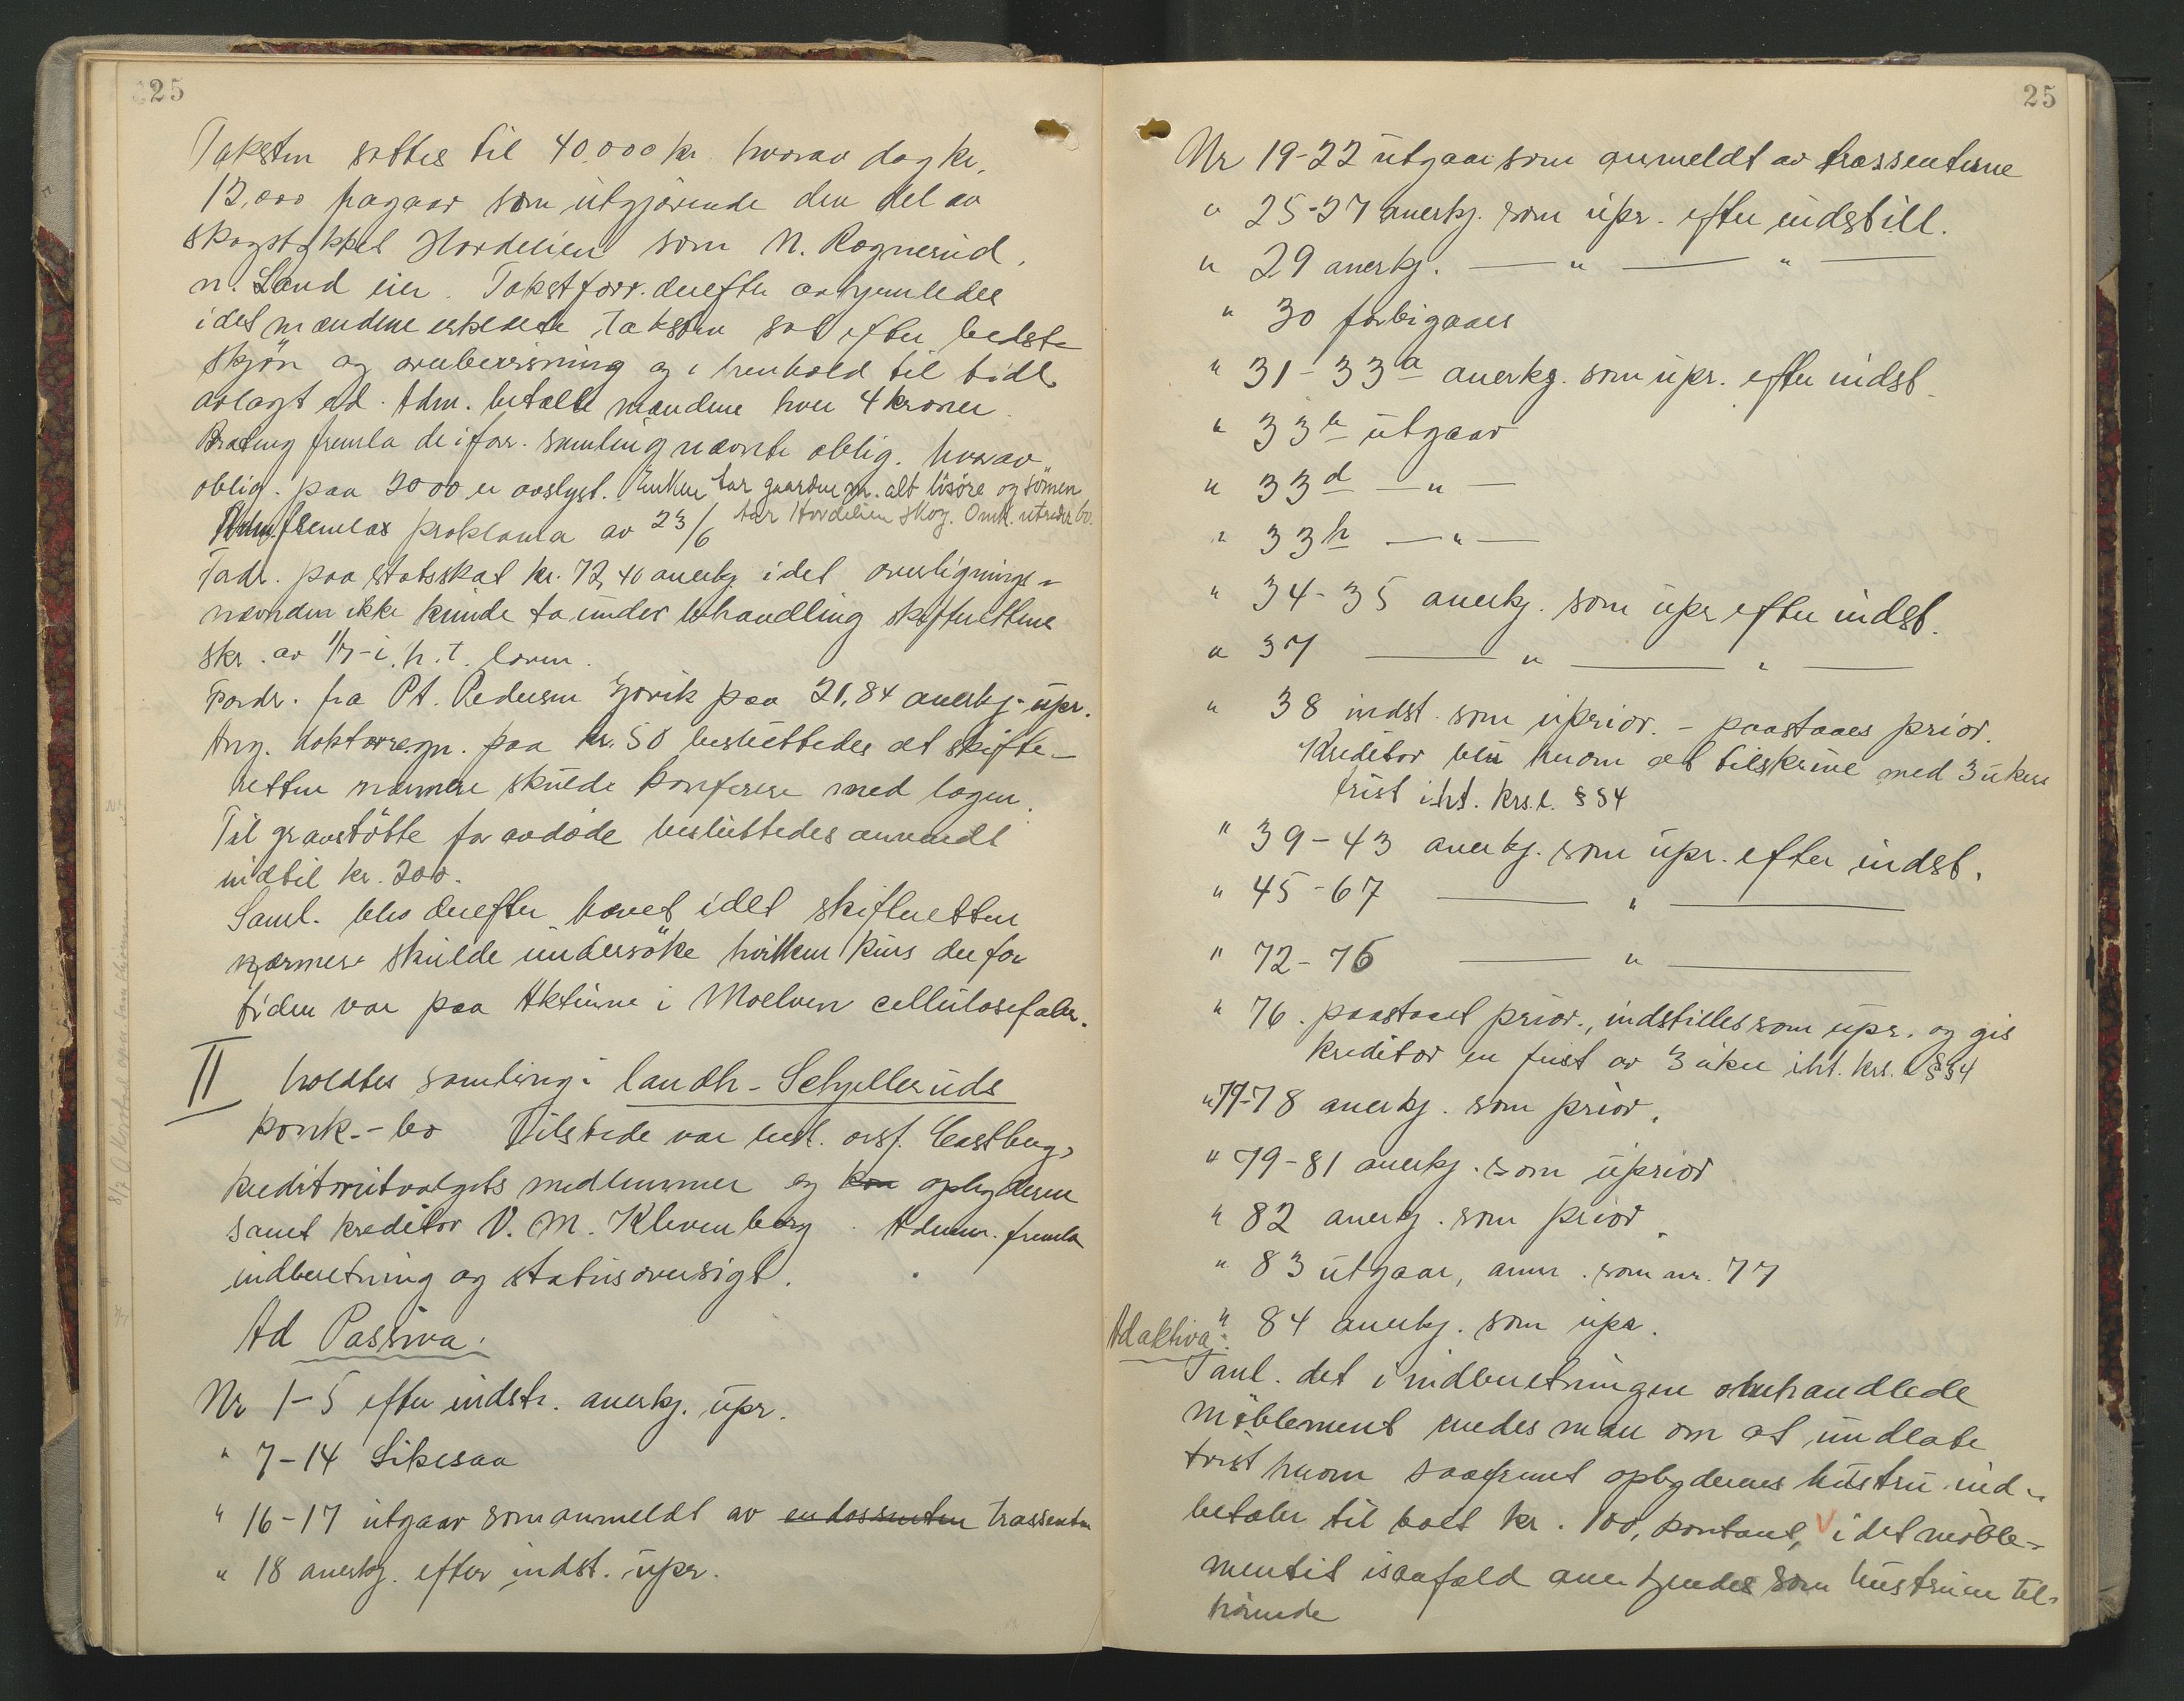 25
Taksten sattes til 40,000 kr. hvorav dog kr.
12,000 fragaar som utgjørende den del av
skogstykket Hordelien som N. Rognerud,
n. Land eier. Takstforr. derefter avhjemledes
idet mændene erklærte taksten sat efter bedste
skjøn og overbevisning og i henhold til tidl.
avlagt ed. Adm. betalte mændene hver 4 kroner.
Brateng fremla de i forr. samling nævnte oblig. hvorav
oblig. paa 2000 er avslyst. Enken tar gaarden m. alt løsøre og sønnen
tar Hordelien skog. Omk. utreder bo.
Adm. fremlas proklama av 23/6
Fordr. paa statsskat kr. 72,40 anerkj. idet overlignings-
nævnden ikke kunde ta under behandling skifterettens
skr. av 1/7 i. h. t. loven.
Fordr. fra Pt. Pedersen Gjøvik paa 21,84 anerkj. upr.
Ang. doktorregn. paa kr. 50 besluttedes at skifte-
retten nærmere skulde konferere med lægen.
Til gravstøtte for avdøde besluttedes anvendt
indtil kr. 200.
Saml. blev derefter hævet idet skifteretten
nærmere skulde undersøke hvilken kurs der for
tiden var paa Aktierne i Moelven cellulosefabr.
II holdtes samling i landh. Schjelleruds
konk.-bo Tilstede var best. orsf. Castberg,
kreditorutvalgets medlemmer og kon opbyderen
samt kreditor V. M. Klevenberg. Adm. fremla
indberetning og statusoversigt.
Ad Passiva:
Nr 1-5 efter indst. anerkj. upr.
" 7-14 Likesaa
" 16-17 utgaar som anmeldt av endossenten trassenten
" 18 anerkj. efter indst. upr.
25
Nr 19-22 utgaar som anmeldt av trassenterne
" 25-27 anerkj. som upr. efter indstill.
" 29 anerkj. — " — " —
" 30 forbigaaes
" 31-33a anerkj. som upr. efter indst.
" 33b utgaar
" 33d — " —
" 33h — " —
" 34-35 anerkj. som upr efter indst.
" 37 — " — " —
" 38 indst. som uprior. - paastaaes prior.
Kreditor blir herom at tilskrive med 3 ukers
frist iht. krs.l. § 54
" 39-43 anerkj. som upr. efter indst.
" 45-67 — " —
" 72-75 — " —
" 76. paastaaet prior., indstilles som upr. og gis
kreditor en frist av 3 uker iht. krs. l §54
" 77-78 anerkj. som prior.
" 79-81 anerkj. som uprior
" 82 anerkj. som prior.
" 83 utgaar, anm. som nr. 77
" 84 anerkj. som upr.
Ad aktiva:
Saml. det i indberetningen omhandlede
møblement enedes man om at undlate
tvist herom saafremt opbyderens hustru ind-
betaler til boet kr. 100, kontant, V idet møble-
mentet isaafald anerkjendes som hustruen til-
hørende